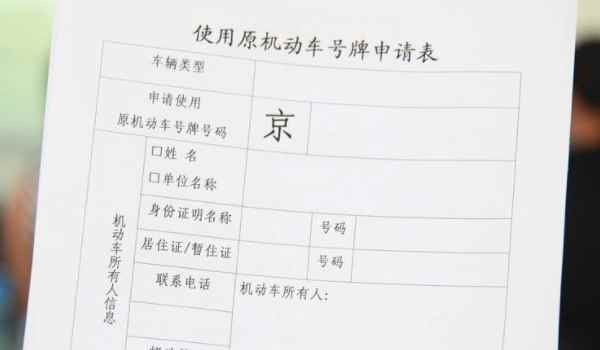 使用原机动车号牌申请表
车辆类型
申请使用
原机动车号牌号码
京
□姓 名
□单位名称
身份证明名称
号码
居住证/暂住证
号码
联系电话
机动车所有人：
机动车所有人信息